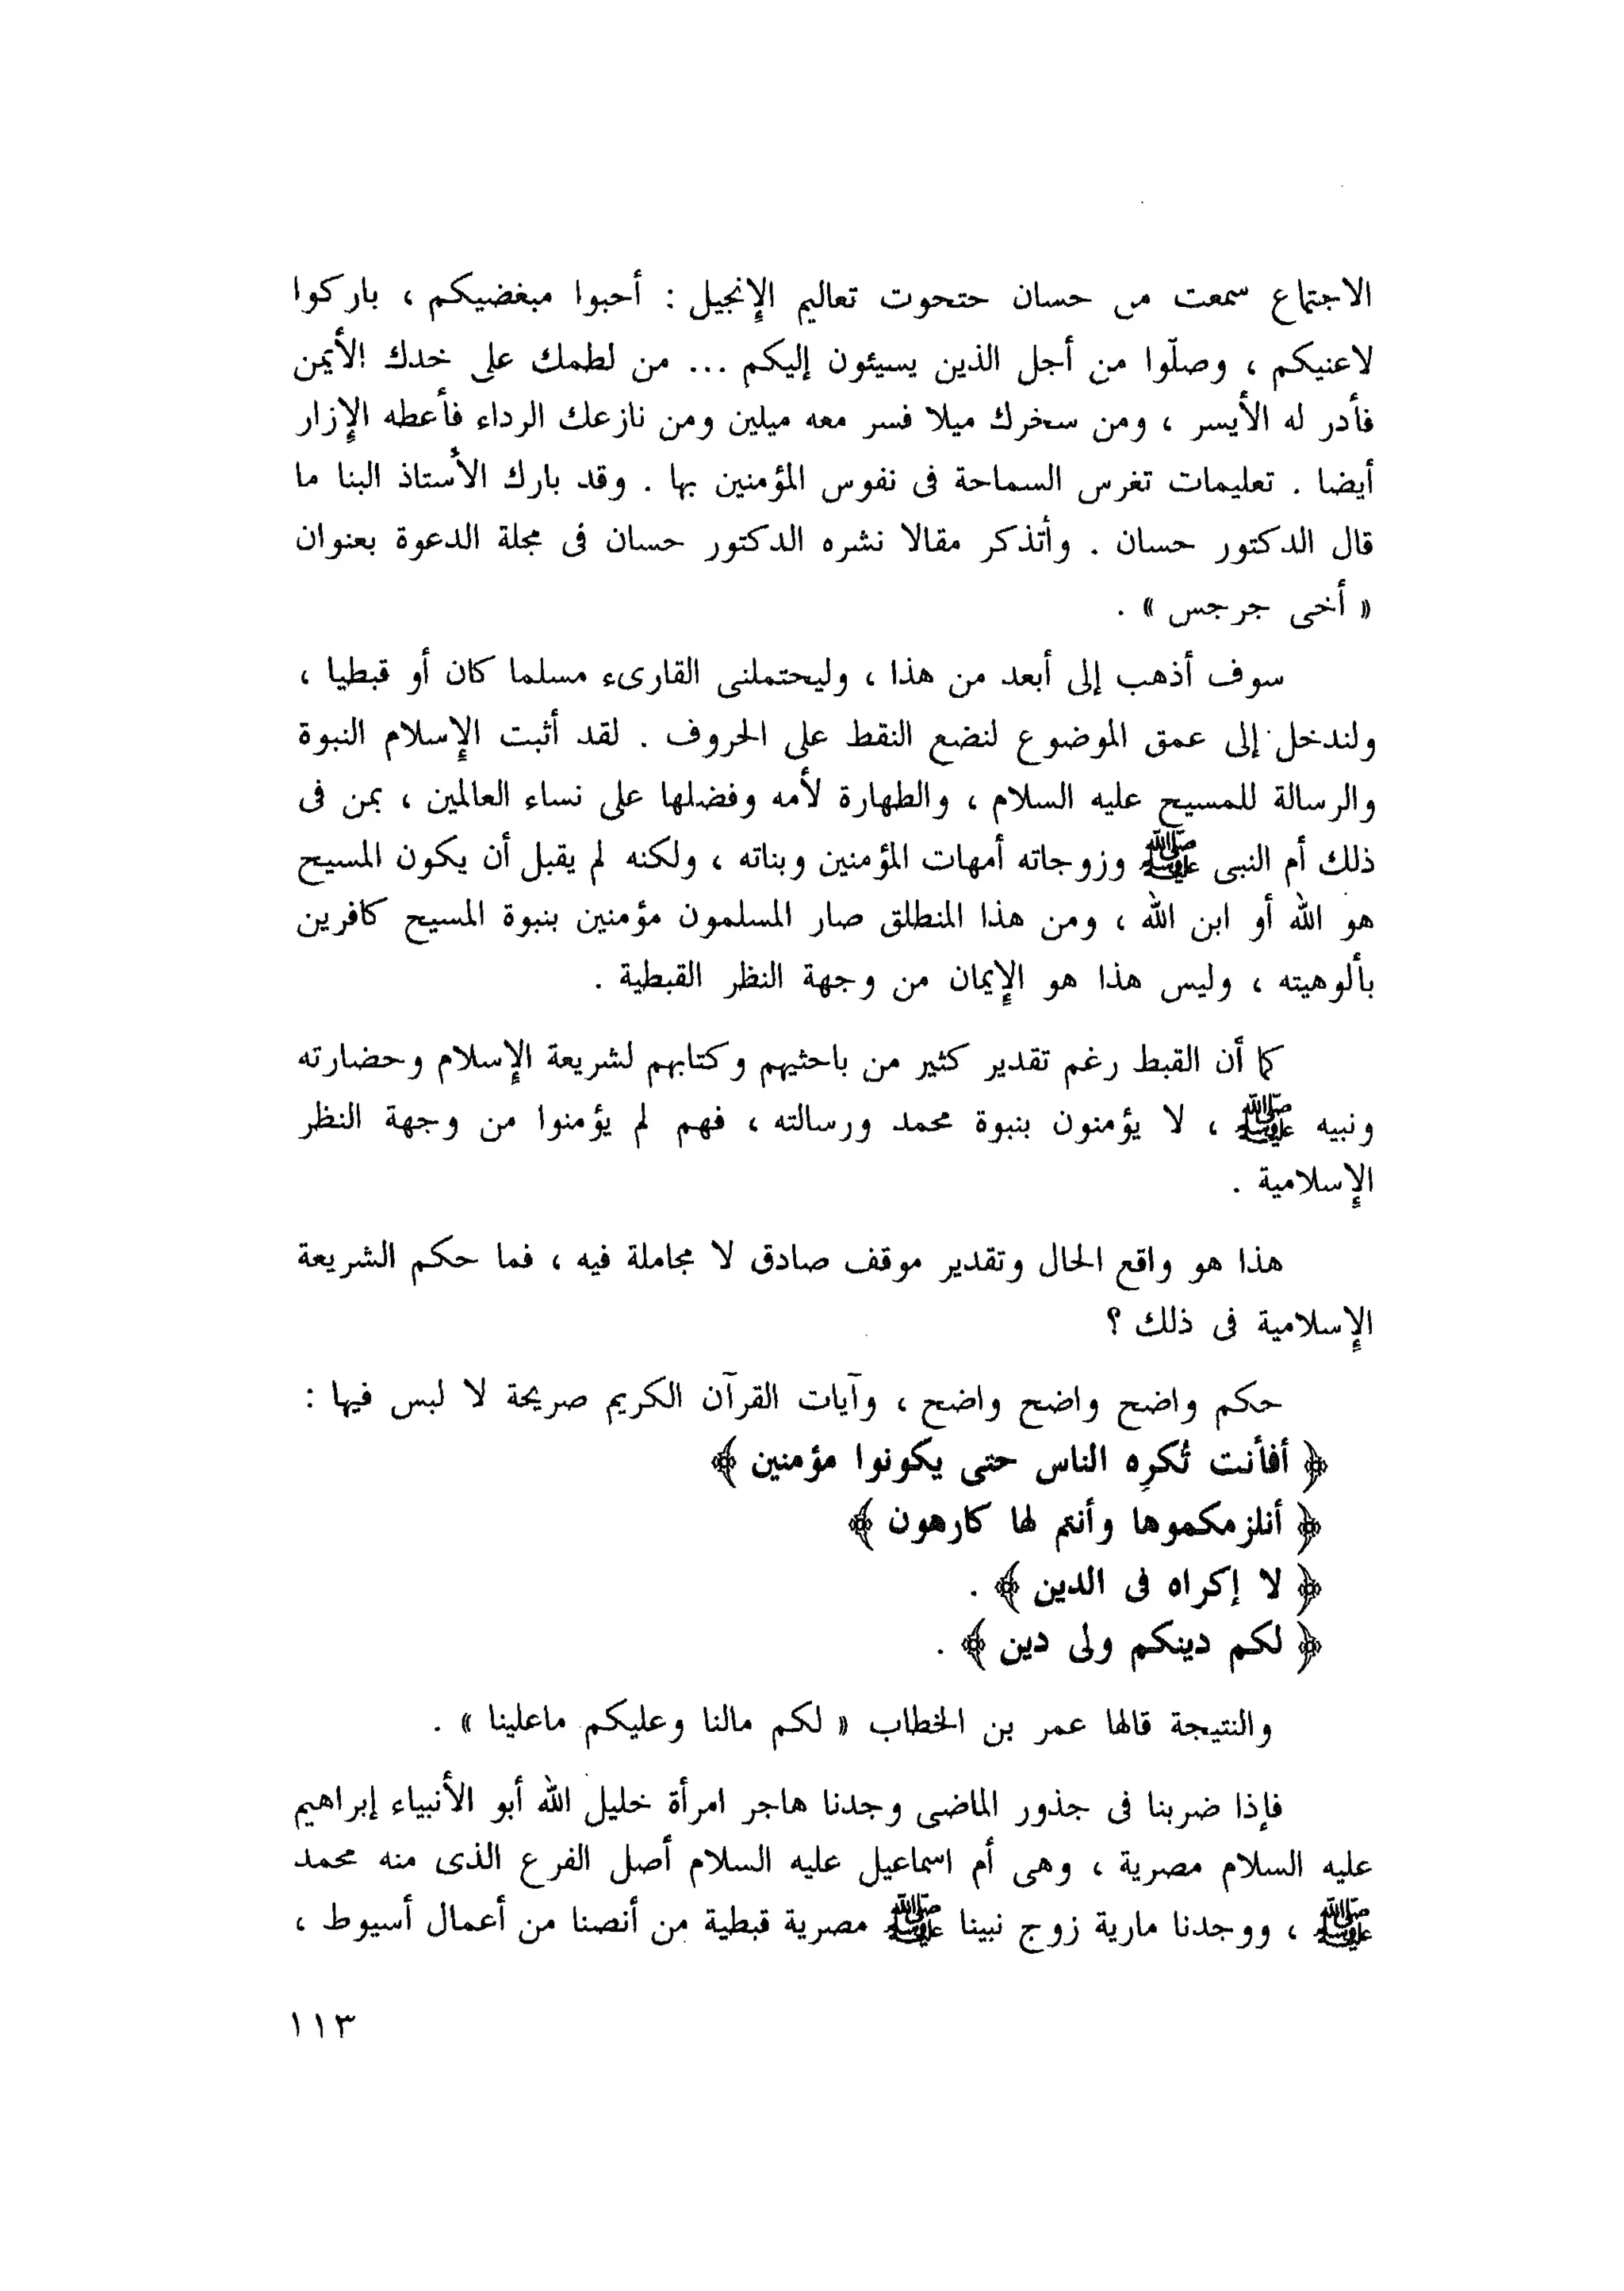 الاجتماع سمعت من حسان حتحوت تعاليم الإنجيل : أحبوا مبغضيكم ، باركوا
لاعنيكم ، وصلّوا من أجل الذين يسيئون إليكم ... من لطمك على خدك الأيمن
فأدر له الأيسر ، ومن سخرك ميلا فسر معه ميلين ومن نازعك الرداء فأعطه الإزار
أيضا . تعليمات تغرس السماحة فى نفوس المؤمنين بها . وقد بارك الأستاذ البنا ما
قال الدكتور حسان . وأتذكر مقالا نشره الدكتور حسان فى مجلة الدعوة بعنوان
« أخى جرجس » .
سوف أذهب إلى أبعد من هذا ، وليحتملنى القارىء مسلما كان أو قبطيا ،
ولندخل إلى عمق الموضوع لنضع النقط على الحروف . لقد أثبت الإسلام النبوة
والرسالة للمسيح عليه السلام ، والطهارة لأمه وفضلها على نساء العالمين ، بمن فى
ذلك أم النبى ﷺ وزوجاته أمهات المؤمنين وبناته ، ولكنه لم يقبل أن يكون المسيح
هو الله أو ابن الله ، ومن هذا المنطلق صار المسلمون مؤمنين بنبوة المسيح كافرين
بألوهيته ، وليس هذا هو الإيمان من وجهة النظر القبطية .
كما أن القبط رغم تقدير كثير من باحثيهم وكتابهم لشريعة الإسلام وحضارته
ونبيه ﷺ ، لا يؤمنون بنبوة محمد ورسالته ، فهم لم يؤمنوا من وجهة النظر
الإسلامية .
هذا هو واقع الحال وتقدير موقف صادق لا مجاملة فيه ، فما حكم الشريعة
الإسلامية فى ذلك ؟
حكم واضح واضح واضح ، وآيات القرآن الكريم صريحة لا لبس فيها :
﴿ أفأنت تُكرِه الناس حتى يكونوا مؤمنين ﴾
﴿ أنلزمكموها وأنتم لها كارهون ﴾
﴿ لا إكراه فى الدين ﴾ .
﴿ لكم دينكم ولى دين ﴾ .
والنتيجة قالها عمر بن الخطاب « لكم مالنا وعليكم ماعلينا » .
فإذا ضربنا فى جذور الماضى وجدنا هاجر امرأة خليل الله أبو الأنبياء إبراهيم
عليه السلام مصرية ، وهى أم اسماعيل عليه السلام أصل الفرع الذى منه محمد
ﷺ ، ووجدنا مارية زوج نبينا ﷺ مصرية قبطية من أنصنا من أعمال أسيوط ،
١١٣